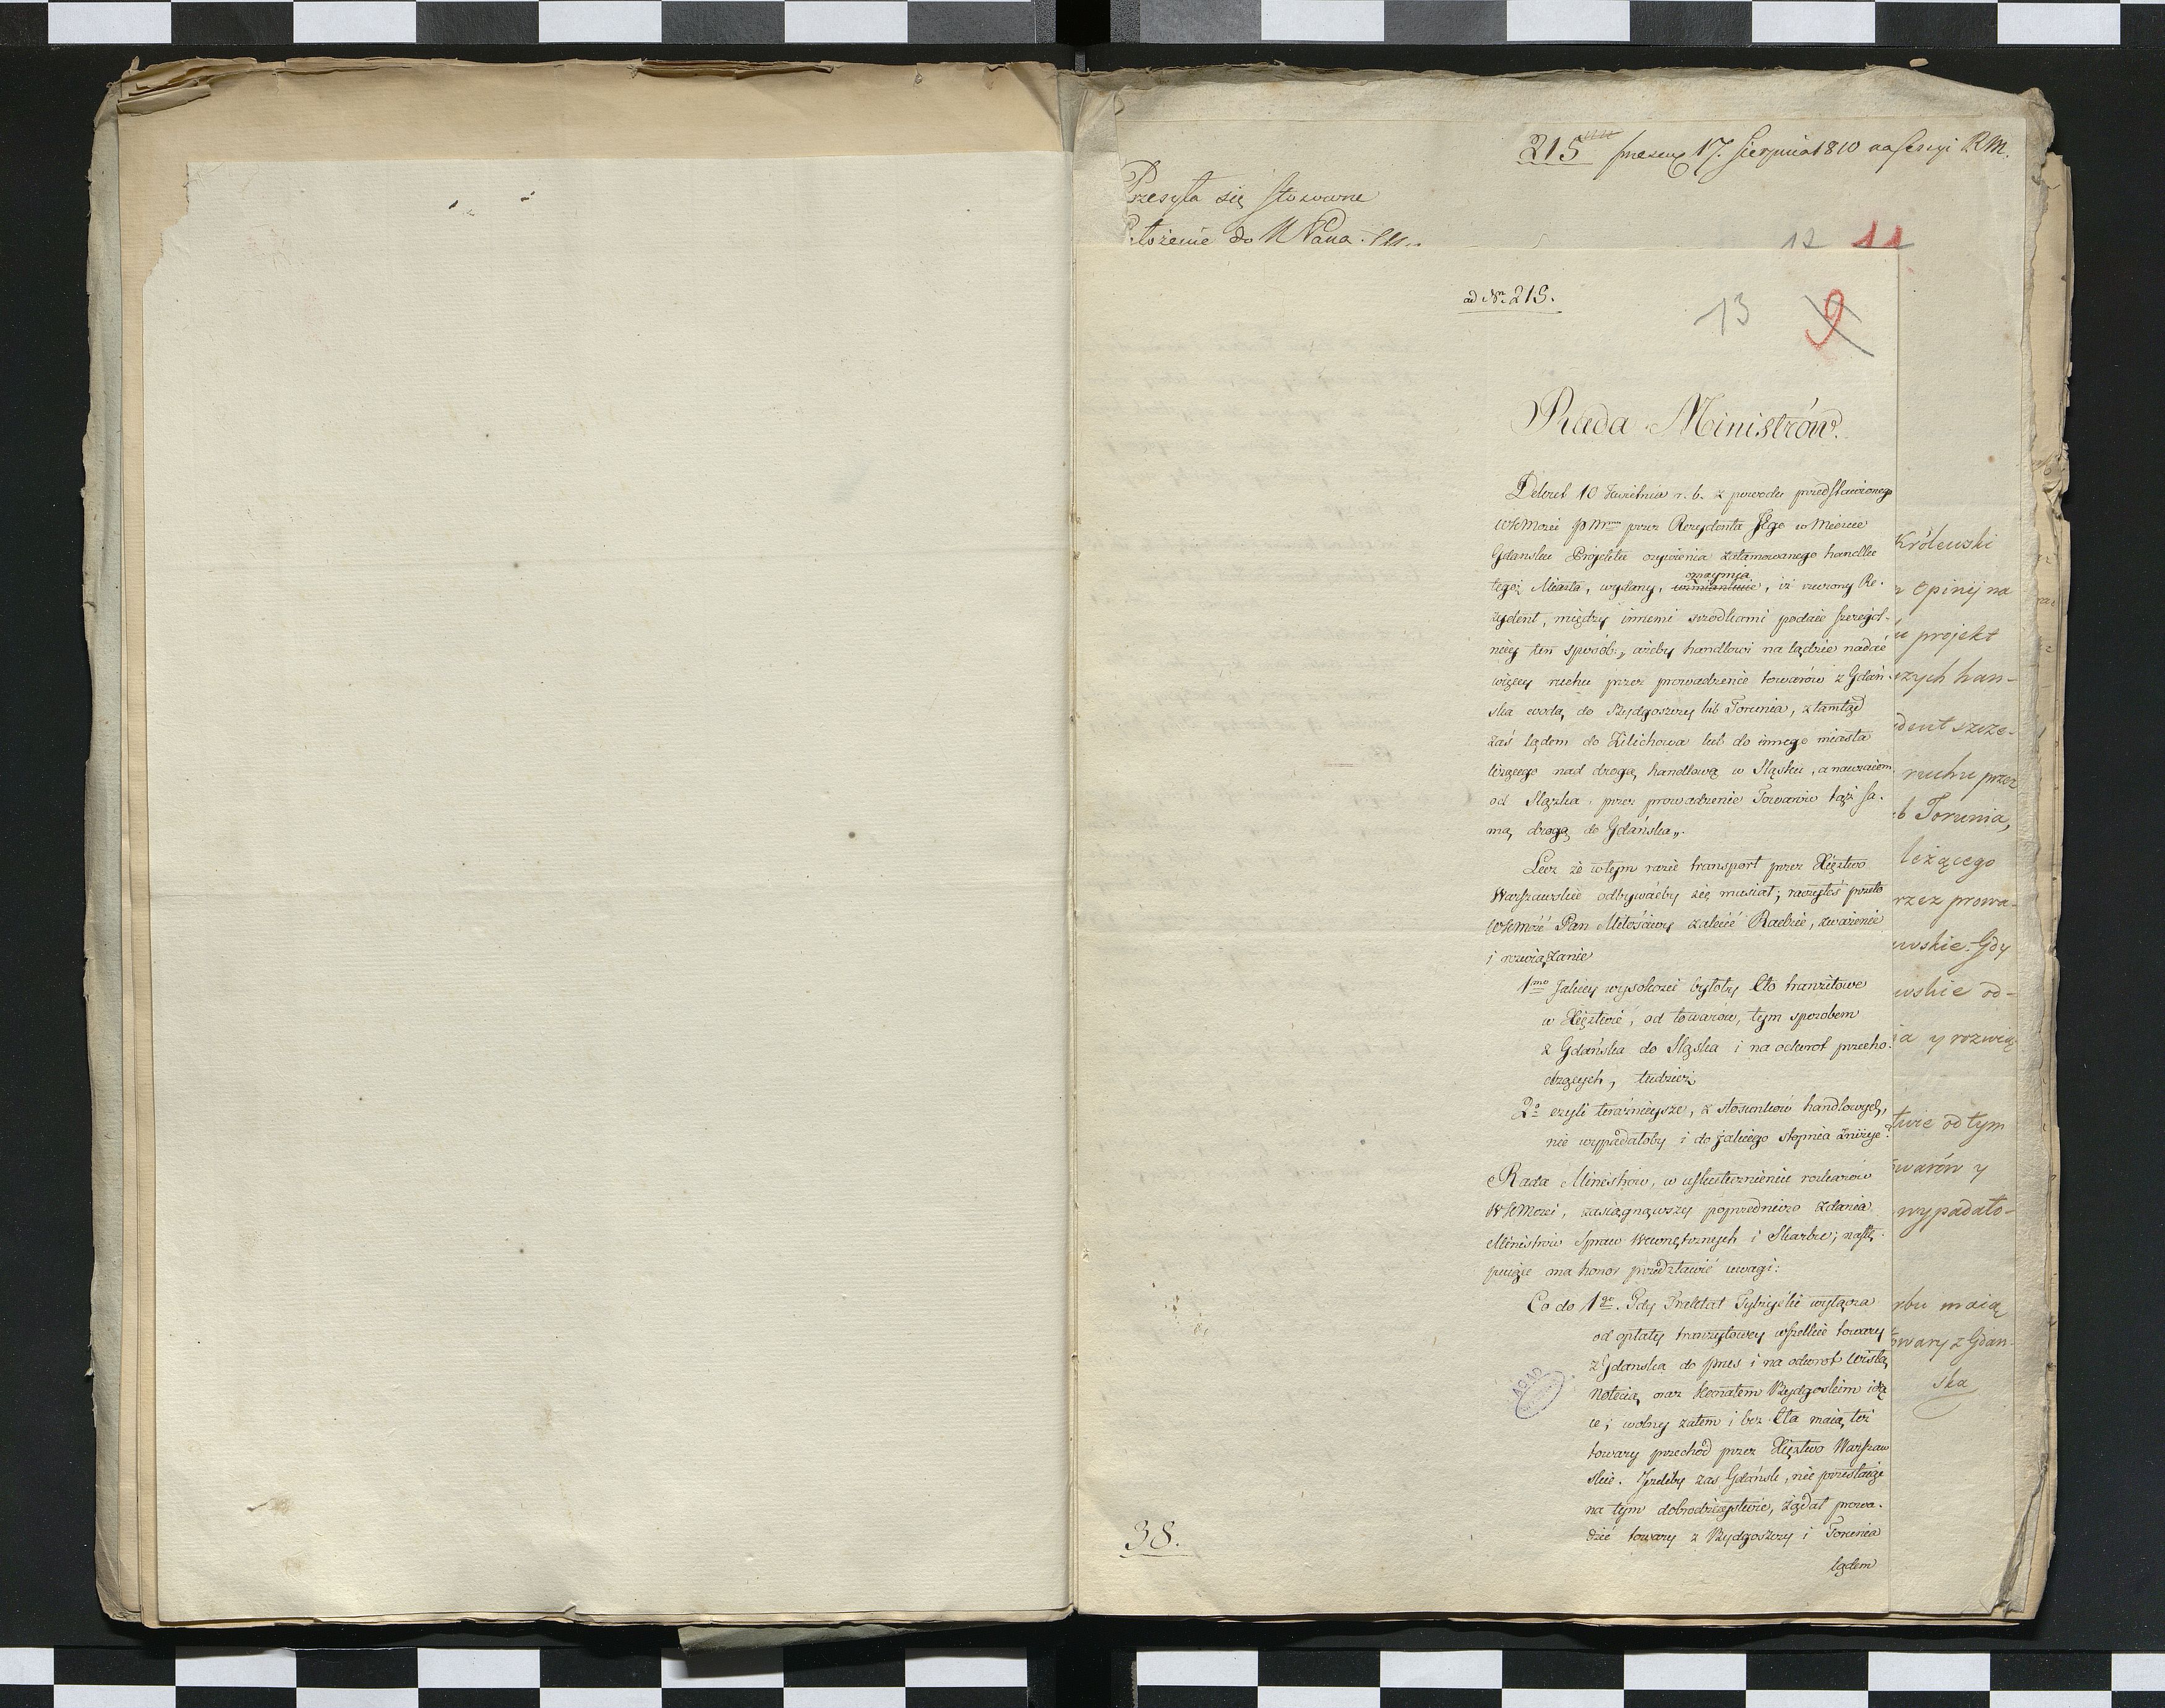 215 17. Sierpnia 1810 na Sessyi RM.
Przesyła się stosowne
łożenie do
12 11
ad Nrm 215.
13 9
Rada Ministrów.
Dekret 10 Kwietnia r. b. z powodu przedstawionego
WKMości przez Rezydenta Jego w Mieście
Gdansku Projektu ożywienia zatamowanego handlu
oznaymia
tegoż Miasta, wydany, wzmiankuie, iż rzeczony Re-
zydent, między innemi srzodkami podaie szczegól-
niey ten sposób: „ażeby handlowi na lądzie nadać
więcey ruchu przez prowadzenie towarów z Gdań-
ska wodą do Bydgoszczy lub Torunia, ztamtąd
zaś lądem do Zilichowa lub do innego miasta
leżącego nad drogą handlową w Sląsku, a nawzaiem
od Sląska, przez prowadzenie Towarów tąż sa-
mą drogą do Gdańska„.
Lecz że w tym razie transport przez Xięztwo
Warszawskie odbywaćby się musiał; raczyłeś przeto
WKMość Pan Miłościwy zalecić Radzie, zważenie
i rozwiązanie
1mo Jakiey wysokości byłoby Cło tranzitowe
w Xięztwie, od towarów, tym sposobem
z Gdańska do Sląska i na odwrot przecho-
dzących, tudzież
2o czyli teraźnieysze, z stosunków handlowych,
nie wypadałoby i do jakiego stopnia zniżyć?
Rada Ministrów, w uskutecznieniu rozkazów
WKMości, zasiągnąwszy poprzedniczo zdania
Ministrów Spraw Wewnętrznych i Skarbu; nastę-
puiące ma honor przedstawić uwagi:
Co do 1go. Gdy Traktat Tylżycki wyłącza
od opłaty tranzytowey wszelkie towary
z Gdanska do Prus i na odwrot Wisłą,
Notecią, oraz Kanałem Bydgoskim idą
ce; wolny zatem i bez Cła maią też
towary przechod przez Xięztwo Warszaw
skie. Jeżeliby zas Gdańsk, nie przestaiąc
na tym dobrodzieystwie, żądał prowa-
dzić towary z Bydgoszczy i Torunia
lądem
38.
Królewski
Opinij na
projekt
szych han-
dent szcze-
ruchu przez
b Torunia,
leżącego
rzez prowa-
wskie. Gdy
wskie od-
ia y rozwią
twie od tym
warów y
wypadało-
rbu maią
owary z Gdan-
ska